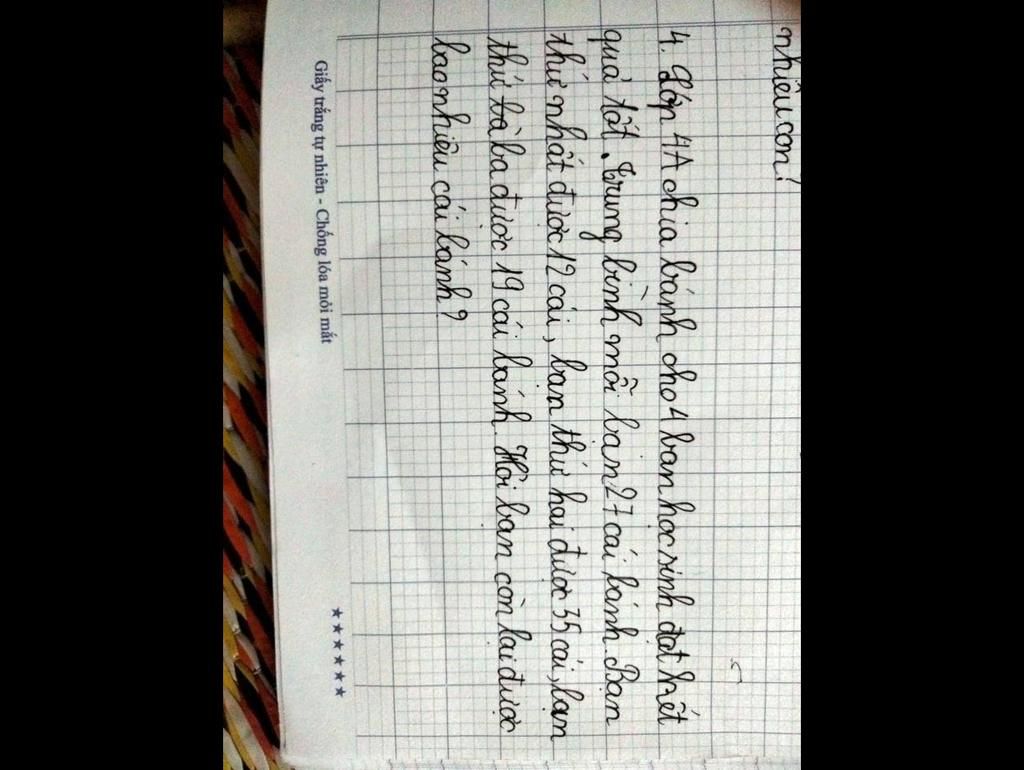 nhiêu con?
4. Lớp 4A chia bánh cho 4 bạn học sinh đạt kết
quả tốt. Trung bình mỗi bạn 27 cái bánh. Bạn
thứ nhất được 12 cái, bạn thứ hai được 35 cái, bạn
thứ ba được 19 cái bánh. Hỏi bạn còn lại được
bao nhiêu cái bánh?
Giấy trắng tự nhiên - Chống lóa mỏi mắt
★★★★★★★